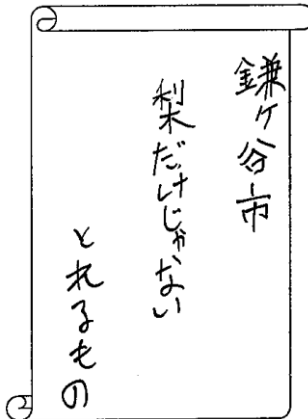 鎌ケ谷市
梨だけじゃない
とれるもの